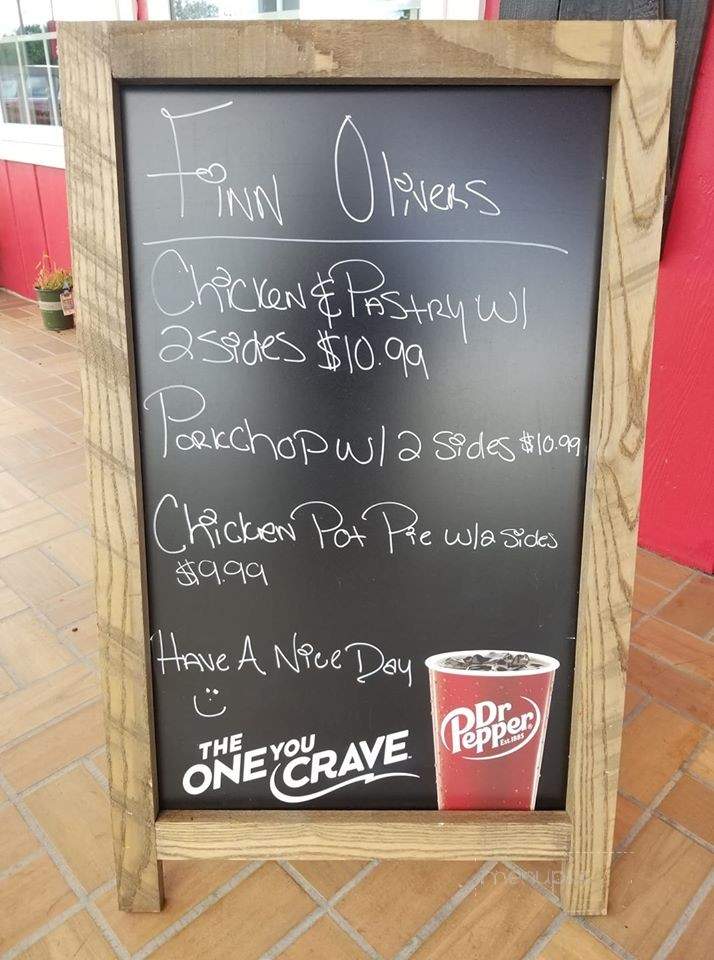 Finn Olivers
Chicken & Pastry w/
2 sides $10.99
Porkchop w/ 2 sides $10.99
Chicken Pot Pie w/2 sides
$9.99
Have A Nice Day
THE
ONE YOU
CRAVE
Dr
Pepper
Est. 1885
menupix